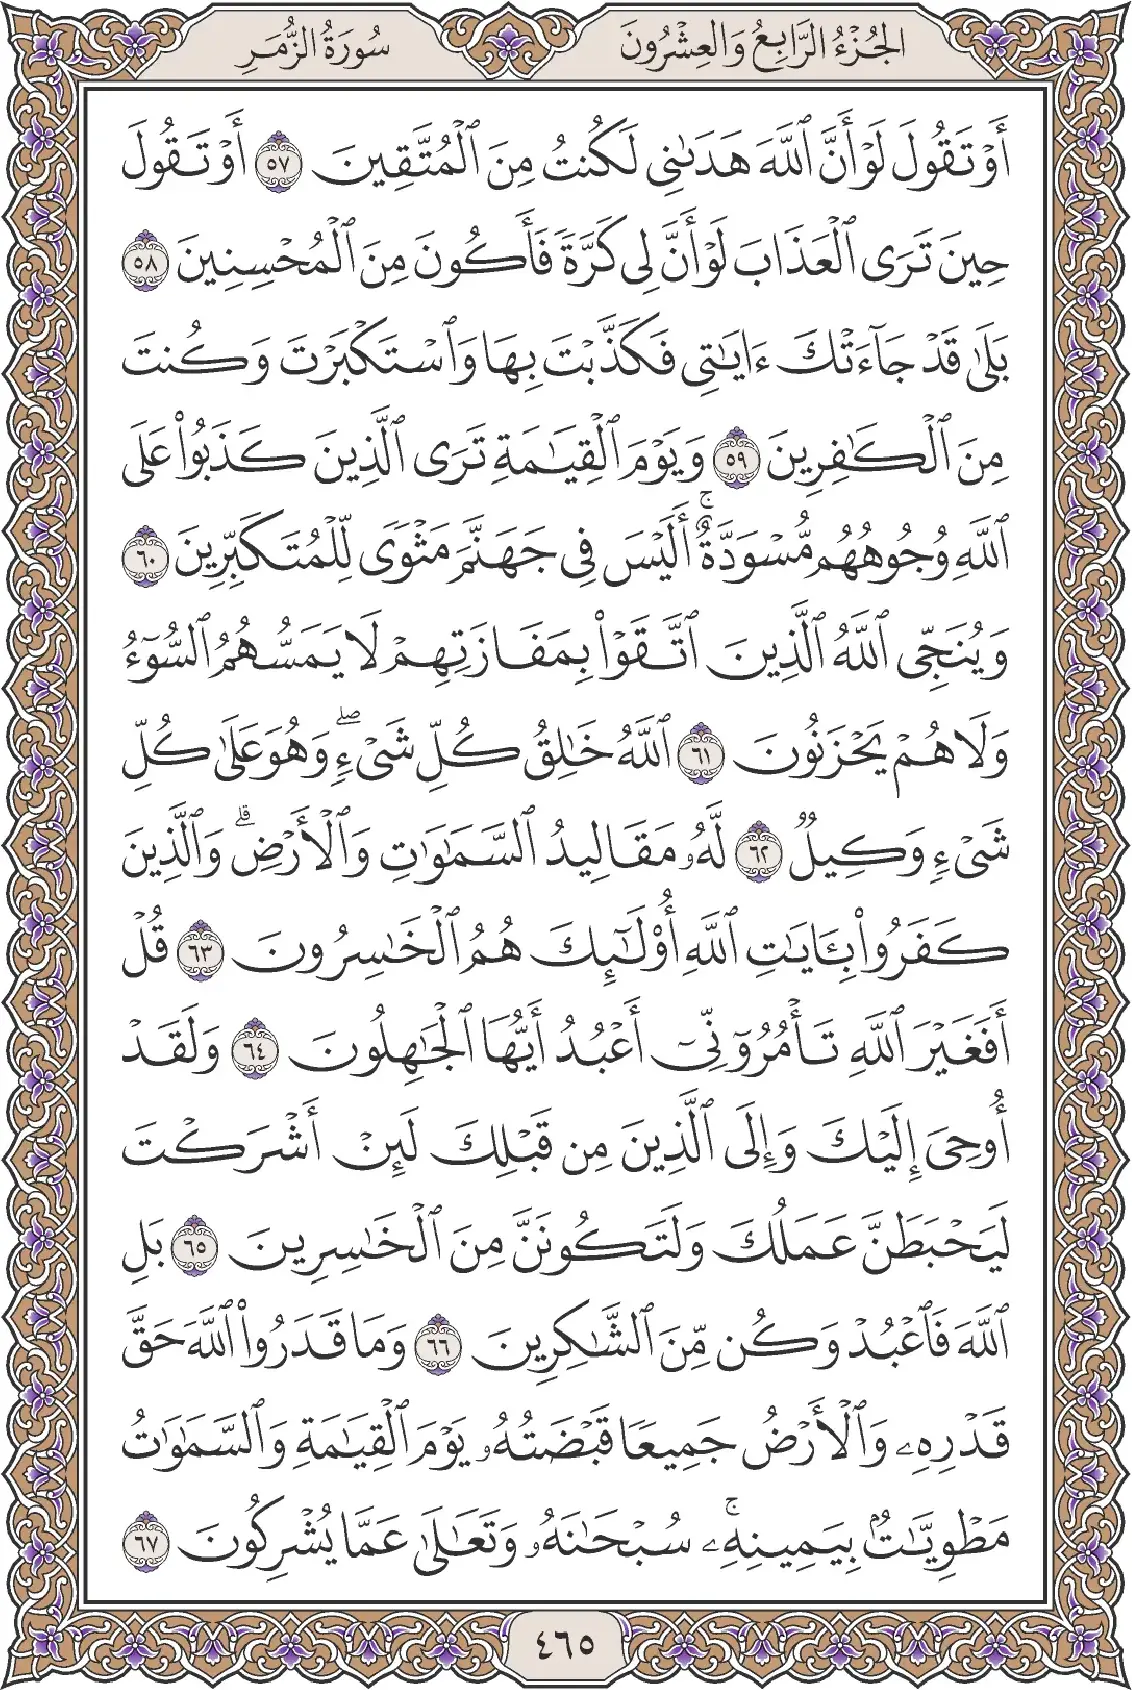 الجُزْءُ الرَّابِعُ وَالعِشْرُونَ
سُورَةُ الزُّمَرِ
أَوْ تَقُولَ لَوْ أَنَّ ٱللَّهَ هَدَىٰنِى لَكُنتُ مِنَ ٱلْمُتَّقِينَ ٥٧ أَوْ تَقُولَ
حِينَ تَرَى ٱلْعَذَابَ لَوْ أَنَّ لِى كَرَّةً فَأَكُونَ مِنَ ٱلْمُحْسِنِينَ ٥٨
بَلَىٰ قَدْ جَآءَتْكَ ءَايَٰتِى فَكَذَّبْتَ بِهَا وَٱسْتَكْبَرْتَ وَكُنتَ
مِنَ ٱلْكَٰفِرِينَ ٥٩ وَيَوْمَ ٱلْقِيَٰمَةِ تَرَى ٱلَّذِينَ كَذَبُوا۟ عَلَى
ٱللَّهِ وُجُوهُهُم مُّسْوَدَّةٌ ۚ أَلَيْسَ فِى جَهَنَّمَ مَثْوًى لِّلْمُتَكَبِّرِينَ ٦٠
وَيُنَجِّى ٱللَّهُ ٱلَّذِينَ ٱتَّقَوْا۟ بِمَفَازَتِهِمْ لَا يَمَسُّهُمُ ٱلسُّوٓءُ
وَلَا هُمْ يَحْزَنُونَ ٦١ ٱللَّهُ خَٰلِقُ كُلِّ شَىْءٍ ۖ وَهُوَ عَلَىٰ كُلِّ
شَىْءٍ وَكِيلٌ ٦٢ لَّهُۥ مَقَالِيدُ ٱلسَّمَٰوَٰتِ وَٱلْأَرْضِ ۗ وَٱلَّذِينَ
كَفَرُوا۟ بِـَٔايَٰتِ ٱللَّهِ أُو۟لَٰٓئِكَ هُمُ ٱلْخَٰسِرُونَ ٦٣ قُلْ
أَفَغَيْرَ ٱللَّهِ تَأْمُرُوٓنِّىٓ أَعْبُدُ أَيُّهَا ٱلْجَٰهِلُونَ ٦٤ وَلَقَدْ
أُوحِىَ إِلَيْكَ وَإِلَى ٱلَّذِينَ مِن قَبْلِكَ لَئِنْ أَشْرَكْتَ
لَيَحْبَطَنَّ عَمَلُكَ وَلَتَكُونَنَّ مِنَ ٱلْخَٰسِرِينَ ٦٥ بَلِ
ٱللَّهَ فَٱعْبُدْ وَكُن مِّنَ ٱلشَّٰكِرِينَ ٦٦ وَمَا قَدَرُوا۟ ٱللَّهَ حَقَّ
قَدْرِهِۦ وَٱلْأَرْضُ جَمِيعًا قَبْضَتُهُۥ يَوْمَ ٱلْقِيَٰمَةِ وَٱلسَّمَٰوَٰتُ
مَطْوِيَّٰتٌۢ بِيَمِينِهِۦ ۚ سُبْحَٰنَهُۥ وَتَعَٰلَىٰ عَمَّا يُشْرِكُونَ ٦٧
٤٦٥